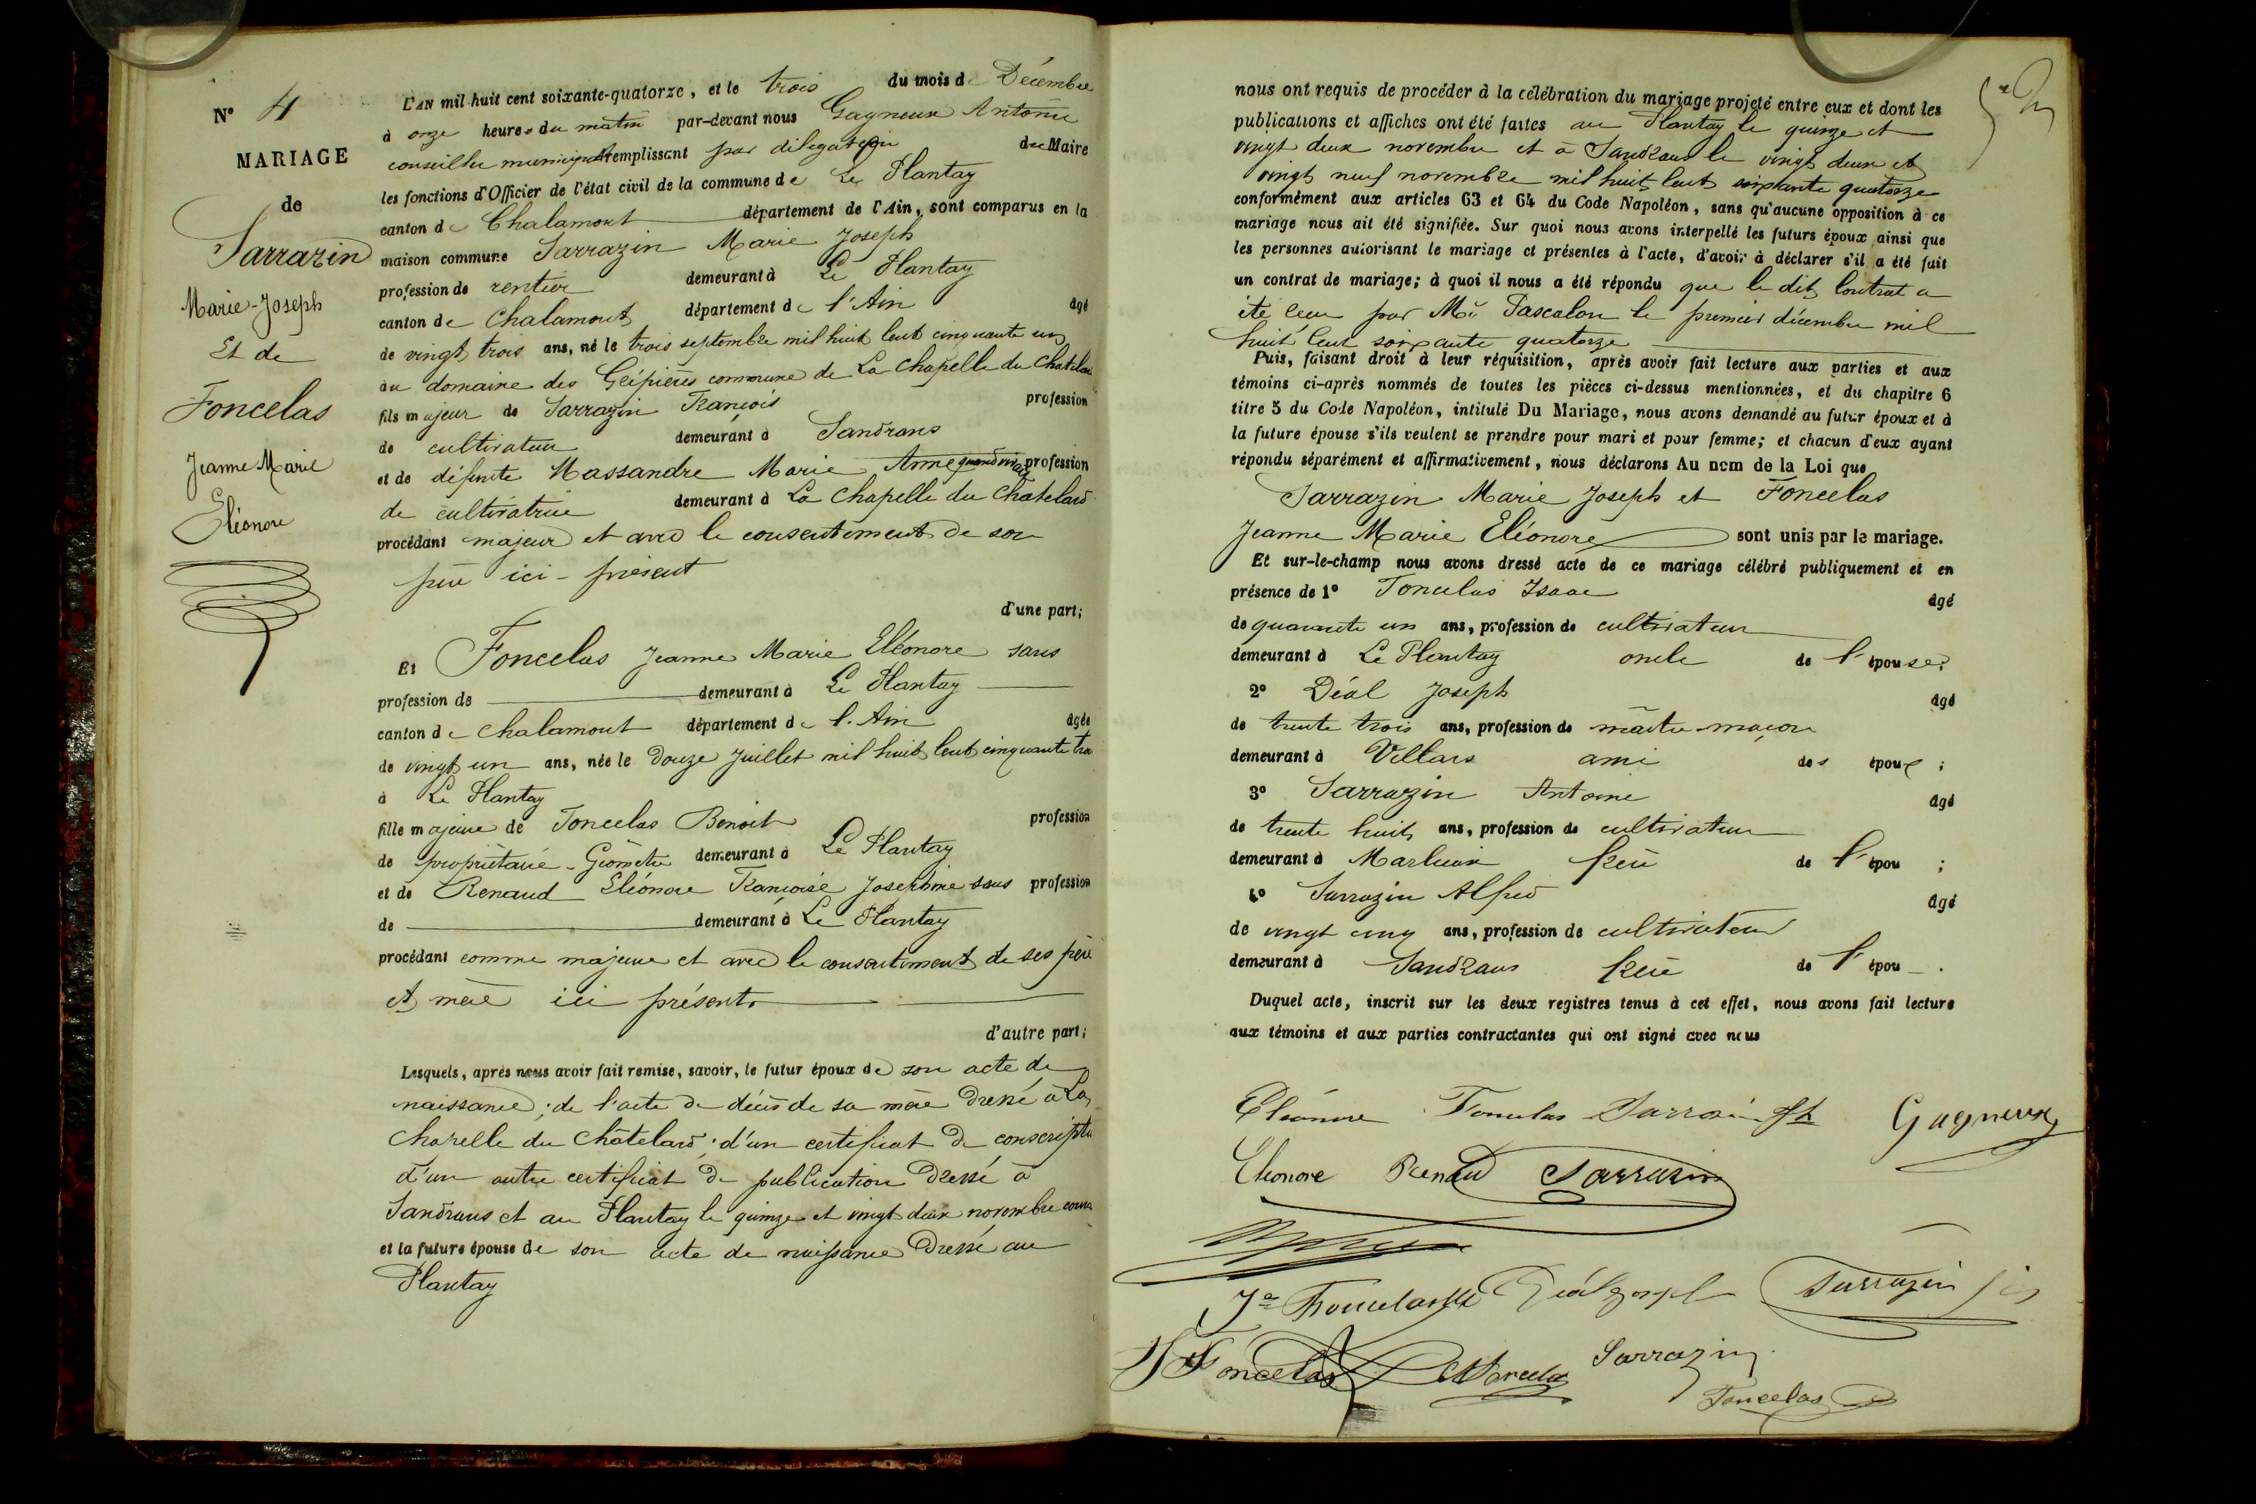 N° 4
MARIAGE
de
Sarrazin
Marie-Joseph
Et de
Foncelas
Jeanne Marie
Eléonore
L'AN mil huit cent soixante-quatorze, et le trois du mois de Décembre
à onze heures du matin par-devant nous Gagneux Antoine
conseiller municipal remplissant par délégation du Maire
les fonctions d'Officier de l'état civil de la commune de Le Plantay
canton de Chalamont département de l'Ain, sont comparus en la
maison commune Sarrazin Marie Joseph
profession de rentier demeurant à Le Plantay
canton de Chalamont département de l'Ain âgé
de vingt trois ans, né le trois septembre mil huit cent cinquante un
au domaine des commune de La Chapelle du Chatelard
fils majeur de Sarrazin François profession
de cultivateur demeurant à Sandrans
et de défunte Massandre Marie Anne quand vivait profession
de cultivatrice demeurant à La Chapelle du Chatelard
procédant majeur et avec le consentement de son
père ici-présent
d'une part;
Et Foncelas Jeanne Marie Eléonore sans
profession de demeurant à Le Plantay
canton de Chalamont département de l'Ain âgée
de vingt un ans, née le douze Juillet mil huit cent cinquante trois
à Le Plantay
fille majeure de Foncelas Benoit profession
de propriétaire-Géomètre demeurant à Le Plantay
et de Renaud Eléonore Françoise Josephine sans profession
de demeurant à Le Plantay
procédant comme majeure et avec le consentement de ses père
et mère ici présents
d'autre part;
Lesquels, après nous avoir fait remise, savoir, le futur époux de son acte de
naissance; de l'acte de décès de sa mère dressé à La
Chapelle du Châtelard; d'un certificat de conscription
d'un autre certificat de publication dressé à
Sandrans et au Plantay le quinze et vingt deux novembre
et la future épouse de son acte de naissance dressé au
Plantay
nous ont requis de procéder à la célébration du mariage projeté entre eux et dont les
publications et affiches ont été faites au Plantay le quinze et
vingt deux novembre et à Sandrans le vingt deux et
vingt neuf novembre mil huit cent soixante quatorze
conformément aux articles 63 et 64 du Code Napoléon, sans qu'aucune opposition à ce
mariage nous ait été signifiée. Sur quoi nous avons interpellé les futurs époux ainsi que
les personnes autorisant le mariage et présentes à l'acte, d'avoir à déclarer s'il a été fait
un contrat de mariage; à quoi il nous a été répondu que le dit Contrat a
été reçu par Me Pascalon le premier décembre mil
huit cent soixante quatorze
Puis, faisant droit à leur réquisition, après avoir fait lecture aux parties et aux
témoins ci-après nommés de toutes les pièces ci-dessus mentionnées, et du chapitre 6
titre 5 du Code Napoléon, intitulé Du Mariage, nous avons demandé au futur époux et à
la future épouse s'ils veulent se prendre pour mari et pour femme; et chacun d'eux ayant
répondu séparément et affirmativement, nous déclarons Au nom de la Loi que
Sarrazin Marie Joseph et Foncelas
Jeanne Marie Eléonore sont unis par le mariage.
Et sur-le-champ nous avons dressé acte de ce mariage célébré publiquement et en
présence de 1° Foncelas Isaac âgé
de quarante un ans, profession de cultivateur
demeurant à Le Plantay oncle de l'épouse;
2° Déal Joseph âgé
de trente trois ans, profession de maître-maçon
demeurant à Villars ami des époux;
3° Sarrazin Antoine âgé
de trente huit ans, profession de cultivateur
demeurant à Marlieux frère de l'épou ;
4° Sarrazin Alfred âgé
de vingt cinq ans, profession de cultivateur
demeurant à Sandrans frère de l'épou .
Duquel acte, inscrit sur les deux registres tenus à cet effet, nous avons fait lecture
aux témoins et aux parties contractantes qui ont signé avec nous
Eléonore Foncelas Sarrazin Gagneux
Eléonore Renaud Sarrazin
Foncelas Déal Joseph Sarrazin
Foncelas Sarrazin
Foncelas